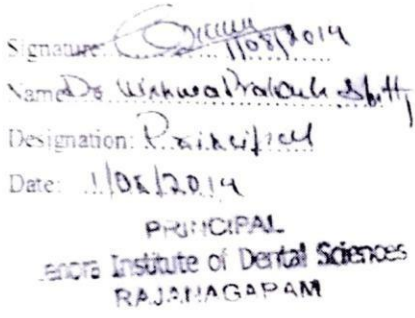 Signature: 1/08/2014
Name Dr Vishwa Prakash Shetty
Designation: Principal
Date: 1/08/2014
PRINCIPAL
Institute of Dental Sciences
RAJANAGARAM